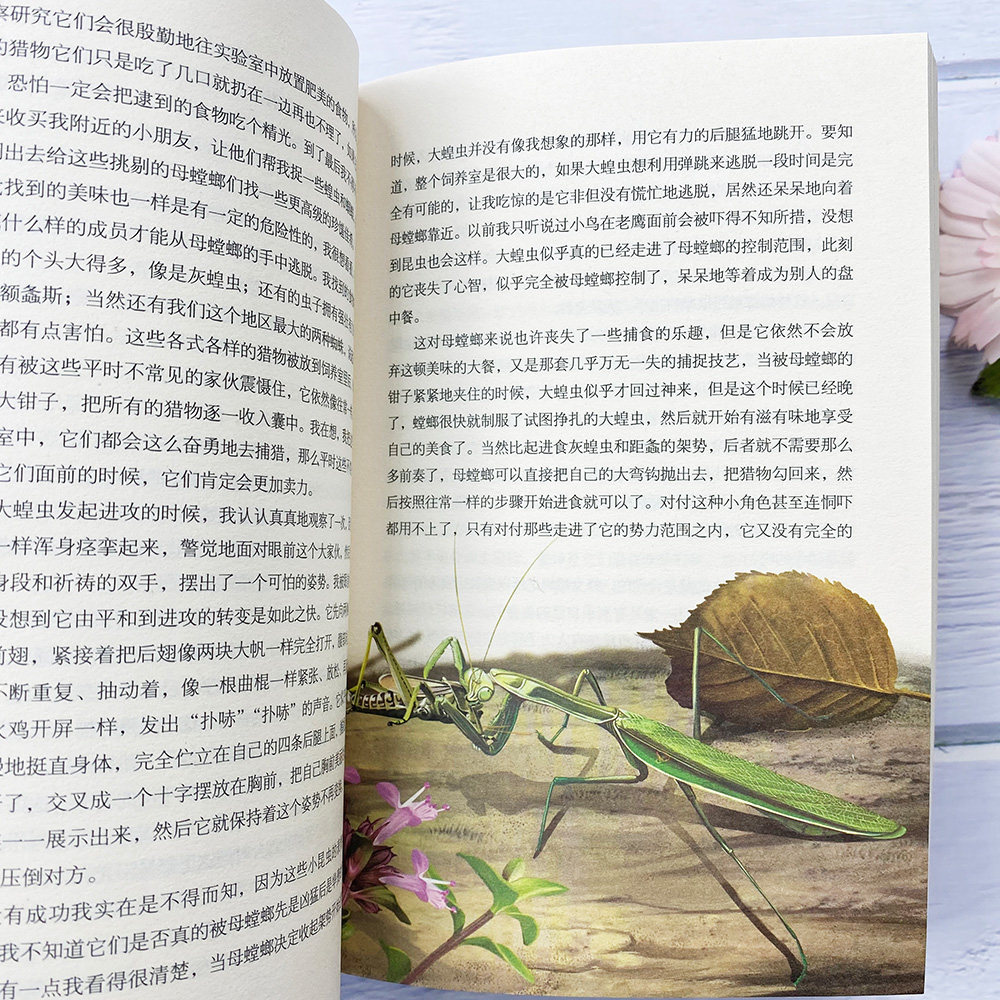 察研究它们会很殷勤地往实验室中放置肥美的食物，
的猎物它们只是吃了几口就扔在一边再也不理了，
恐怕一定会把逮到的食物吃个精光。到了最后我
来收买我附近的小朋友，让他们帮我捉一些蝗虫和
出去给这些挑剔的母螳螂们找一些更高级的珍馐
找到的美味也一样是有一定的危险性的，我很想
什么样的成员才能从母螳螂的手中逃脱。我找
的个头大得多，像是灰蝗虫；还有的虫子拥有强
额螽斯；当然还有我们这个地区最大的两种蜘蛛，
都有点害怕。这些各式各样的猎物被放到饲养室
有被这些平时不常见的家伙震慑住，依然像往常一
大钳子，把所有的猎物逐一收入囊中。我在想，
室中，它们都会这么奋勇地去捕猎，那么平时这些
它们面前的时候，它们肯定会更加卖力。
大蝗虫发起进攻的时候，我认认真真地观察了一次，
一样浑身痉挛起来，警觉地面对眼前这个大家伙，
身段和祈祷的双手，摆出了一个可怕的姿势，我被
没想到它由平和到进攻的转变是如此之快。它先向
前翅，紧接着把后翅像两块大帆一样完全打开，
不断重复、抽动着，像一根曲棍一样紧张、放松，
火鸡开屏一样，发出“扑哧”“扑哧”的声音。
慢地挺直身体，完全伫立在自己的四条后腿上面，
了，交叉成一个十字摆放在胸前，把自己胸前
一一展示出来，然后它就保持着这个姿势不再
压倒对方。
有成功我实在是不得而知，因为这些小昆虫的
我不知道它们是否真的被母螳螂先是凶猛后是
有一点我看得很清楚，当母螳螂决定收起架势
时候，大蝗虫并没有像我想象的那样，用它有力的后腿猛地跳开。要知
道，整个饲养室是很大的，如果大蝗虫想利用弹跳来逃脱一段时间是完
全有可能的，让我吃惊的是它非但没有慌忙地逃脱，居然还呆呆地向着
母螳螂靠近。以前我只听说过小鸟在老鹰面前会被吓得不知所措，没想
到昆虫也会这样。大蝗虫似乎真的已经走进了母螳螂的控制范围，此刻
的它丧失了心智，似乎完全被母螳螂控制了，呆呆地等着成为别人的盘
中餐。
这对母螳螂来说也许丧失了一些捕食的乐趣，但是它依然不会放
弃这顿美味的大餐，又是那套几乎万无一失的捕捉技艺，当被母螳螂的
钳子紧紧地夹住的时候，大蝗虫似乎才回过神来，但是这个时候已经晚
了，螳螂很快就制服了试图挣扎的大蝗虫，然后就开始有滋有味地享受
自己的美食了。当然比起进食灰蝗虫和距螽的架势，后者就不需要那么
多前奏了，母螳螂可以直接把自己的大弯钩抛出去，把猎物勾回来，然
后按照往常一样的步骤开始进食就可以了。对付这种小角色甚至连恫吓
都用不上了，只有对付那些走进了它的势力范围之内，它又没有完全的